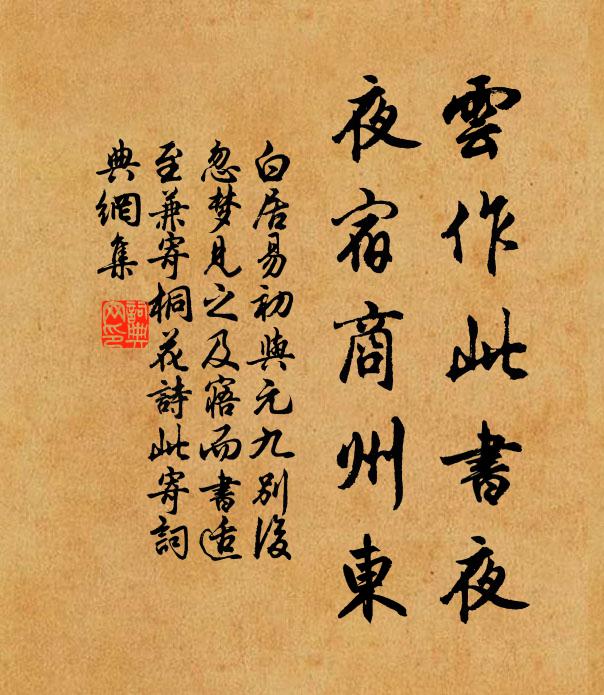 雲作此書夜
夜宿商州東
白居易初與元九別後
忽梦見之及寤而書适
至兼寄桐花詩此寄詞
典網集
詞典
网印